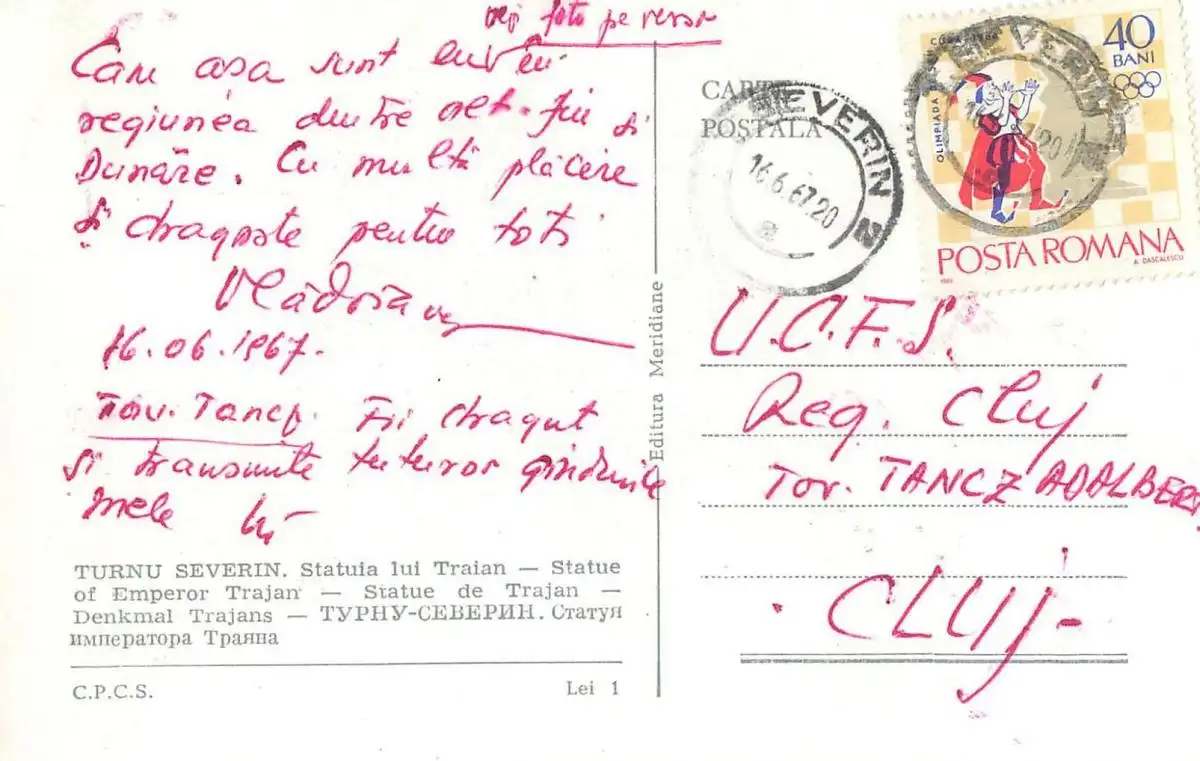 vezi foto pe verso
Cam asa sunt eu în
regiunea dintre Olt-Jiu si
Dunăre. Cu multă plăcere
si dragoste pentru toti
16.06.1967.
Tov. Tancz. Fii dragut
si transmite tuturor gindurile
mele
TURNU SEVERIN. Statuia lui Traian — Statue
of Emperor Trajan — Statue de Trajan —
Denkmal Trajans — ТУРНУ-СЕВЕРИН. Статуя
императора Траяна
C.P.C.S.
Lei 1
Editura Meridiane
CARTE
POSTALA
SEVERIN 2
16.6.67.20
CUBA-1966
OLIMPIADA DE SAH
40
BANI
POSTA ROMANA
A. DASCALESCU
U.C.F.S.
Reg. Cluj
Tov. TANCZ ADALBERT
CLUJ-